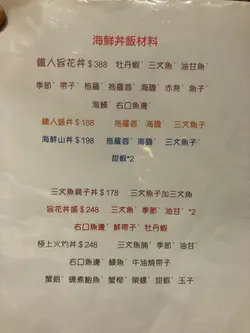 海鮮丼飯材料
鐵人旨花丼＄388 牡丹蝦、三文魚、油甘魚、
季節、帶子、拖羅、拖羅蓉、海膽、赤身、魚子、
海鰻、右口魚邊、
鐵人盛丼＄188 拖羅蓉、海膽、三文魚子
海鮮山丼＄198 拖羅蓉、海膽、三文魚子、
甜蝦*2
三文魚親子丼＄178 三文魚子加三文魚
旨花丼盛＄248 三文魚、季節、油甘、*2
右口魚邊、鮮帶子、牡丹蝦
極上火灼丼＄248 三文魚腩、季節、油甘、
右口魚邊、鰻魚、牛油燒帶子
蟹鉗、磯煮鮑魚、蟹柳、榮螺、甜蝦、玉子